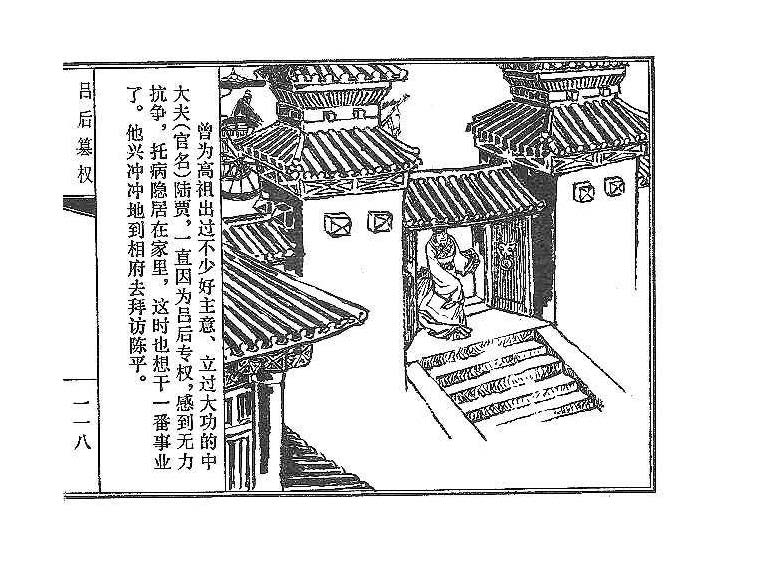 曾为高祖出过不少好主意、立过大功的中
大夫(官名)陆贾,一直因为吕后专权,感到无力
抗争,托病隐居在家里,这时也想干一番事业
了。他兴冲冲地到相府去拜访陈平。
吕后篡权
一一八